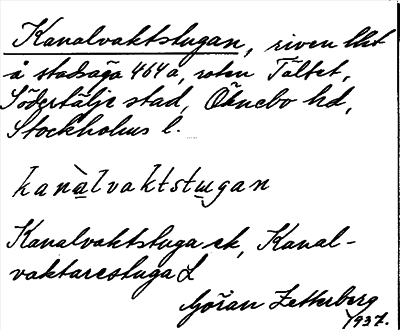 Kanalvaktstugan, riven lht
å stadsäga 464a, roten Tältet,
Södertälje stad, Öknebo hd,
Stockholms l.
kanàlvaktstugan
Kanalvaktstuga ek, Kanal-
vaktarestuga L
Göran Zetterberg
1937.